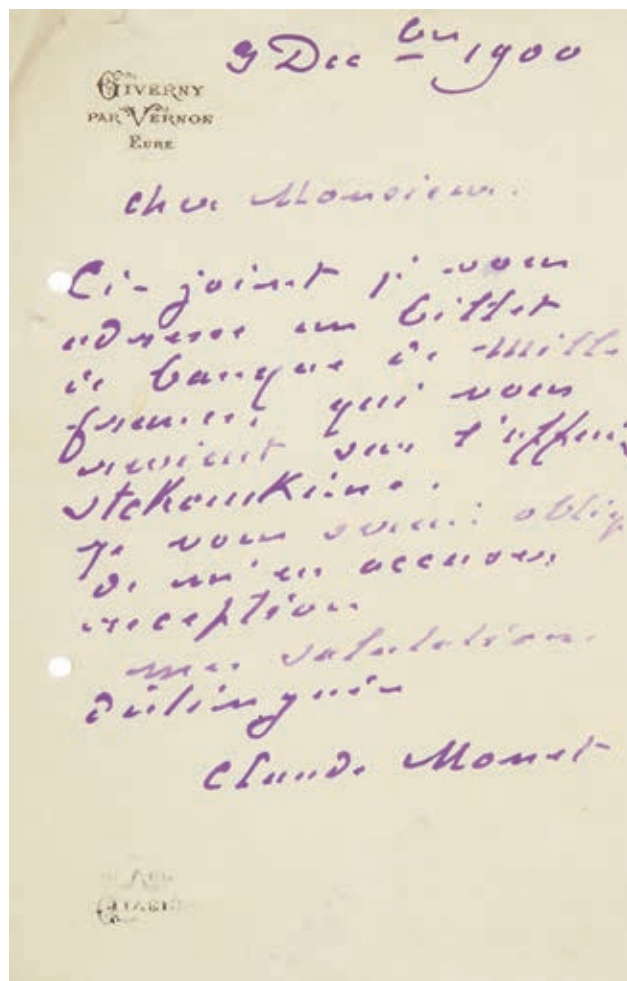 9 Dec bre 1900
GIVERNY
PAR VERNON
EURE
cher Monsieur.
Ci-joint je vous
adresse un billet
de banque de mille
francs, qui vous
revient sur l'affai
Stchoukine.
Je vous serai oblig
de m'en accuser
reception
mes salutations
distinguées
Claude Monet